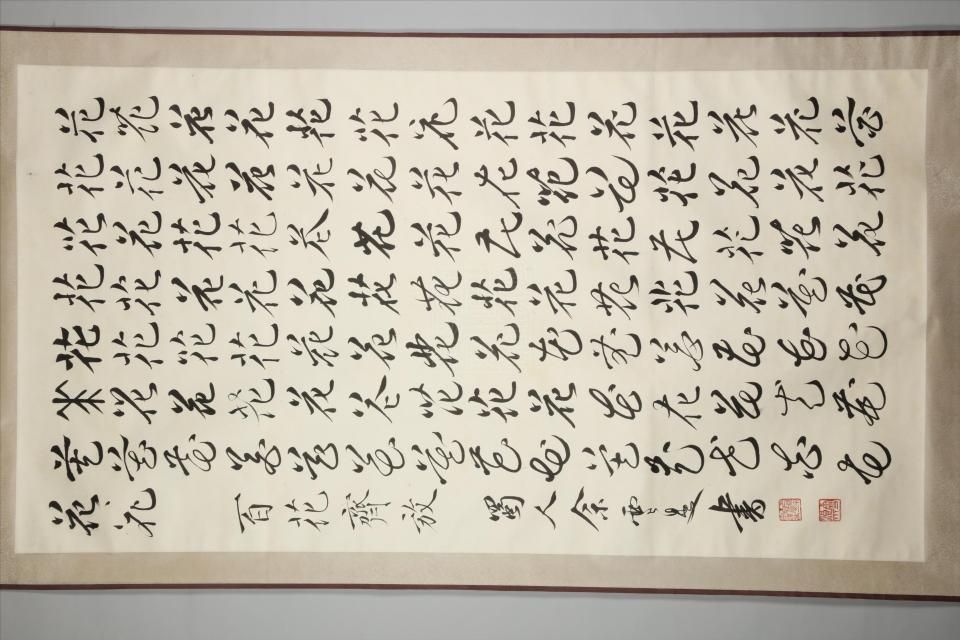 花花花花花花花花花花花花花花
花花花花花花花花花花花花花花
花花花花花花花花花花花花花花
花花花花花花花花花花花花花花
花花花花花花花花花花花花花花
花花花花花花花花花花花花花花
花花花花花花花花花花花花花花
花花 百花齊放 蜀人余雪曼書